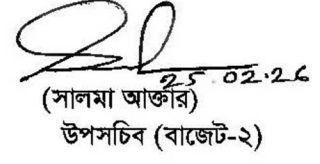 25.02.26
(সালমা আক্তার)
উপসচিব (বাজেট-২)